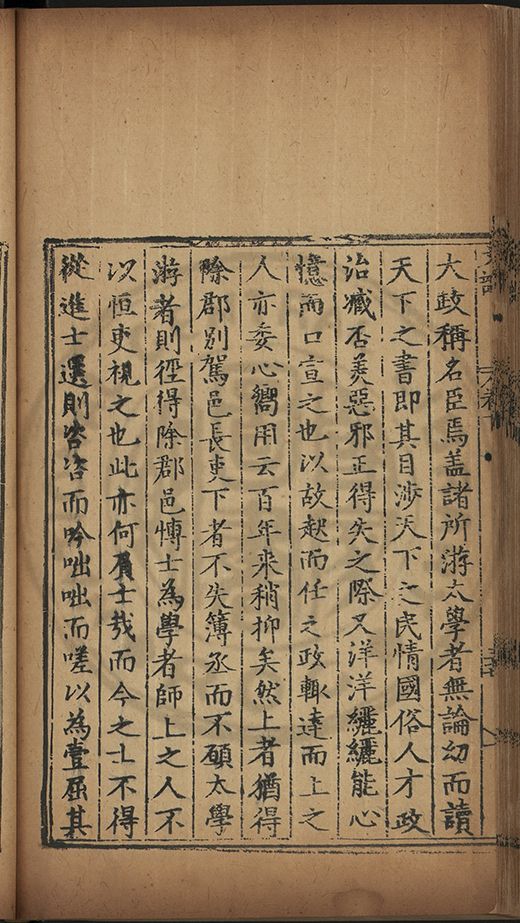 大政稱名臣焉盖諸所游太學者無論幼而讀
天下之書即其目渉天下之民情國俗人才政
治臧否美惡邪正得失之際又洋洋纚纚能心
憶而口宣之也以故起而任之政輙達而上之
人亦委心嚮用云百年来稍抑矣然上者猶得
除郡别駕邑長吏下者不失簿丞而不碩太學
游者則徑得除郡邑博士為學者師上之人不
以恒吏視之也此亦何負士哉而今之士不得
從進士選則咨咨而吟咄咄而嗟以為壹屈其